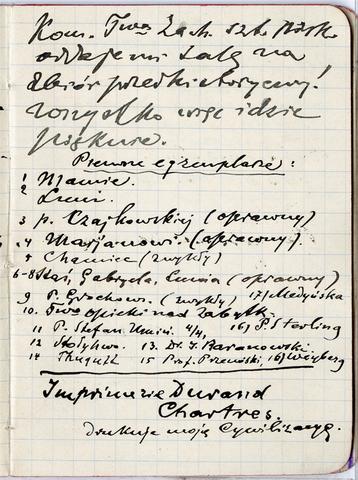 Kom. Twa Zach. Szt. Pięk.
oddaje mi salę na
Zbiór przedhistoryczny!
wszystko więc idzie
pięknie.
Pierwsze egzemplarze:
1 Mamie.
2
3 p. Czajkowskiej (oprawny)
4 Marjanowi. (oprawny).
5 Chamiec (zwykły)
6-8 Staś, Gabryela, (oprawny)
9 P. Grochow. (zwykły) 17) Medyńska
10. Twu opieki nad zabytk.
11 P. Stefan. 4/4, 16) P. Sterling
12 Stołyhwo. 13. Dr. J. Baranowski.
14 Thugutt 15 Prof. 16) Wizberg
Imprimerie Durand
Chartres.
Drukuje moją Cywilizację.